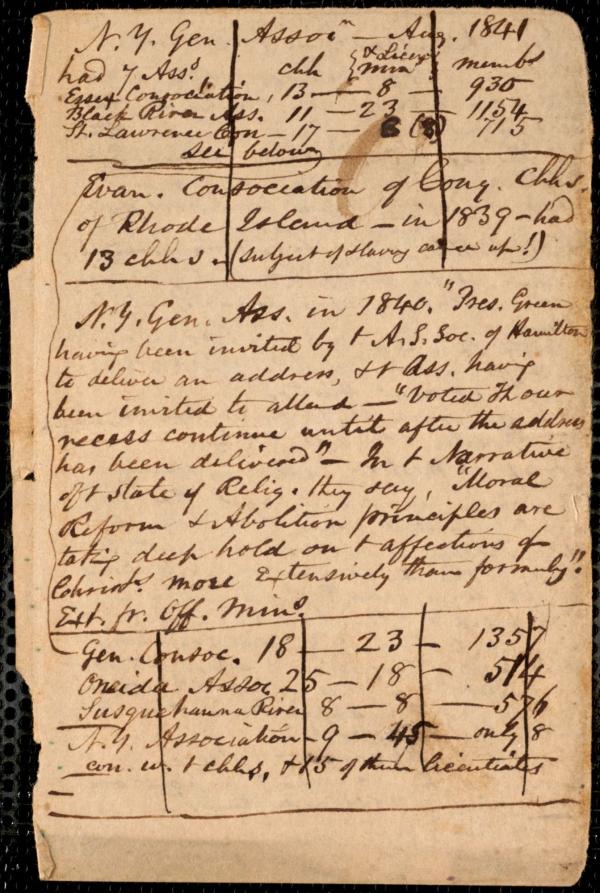 N.Y. Gen. Assocn — Aug. 1841
had 7 Asss. chh { & Licen. min } membs
Essex Consociation, 13 — 8 — 930
Black River Ass. 11 — 23 — 1154
St. Lawrence Con — 17 — 8 (8) 715
see below
Evan. Consociation of Cong. Chhs.
of Rhode Island — in 1839 — had
13 chhs. — (subject of slavery came up!)
N.Y. Gen. Ass. in 1840. "Pres. Green
having been invited by t A.S. Soc. of Hamilton
to deliver an address, & t Ass. having
been invited to attend — "Voted Th our
recess continue until after the address
has been delivered" — In t Narrative
of t State of Relig. they say, "Moral
Reform & Abolition principles are
taking deep hold on t affections of
Christns. more Extensively than formerly."
Ext. fr. Off. Mins
Gen. Consoc. 18 — 23 — 1357
Oneida Assoc 25 — 18 — 514
Susquehanna River 8 — 8 — 576
N.Y. Association — 9 — 45 — only 8
con. w. t chhs, & 15 of them licentiates